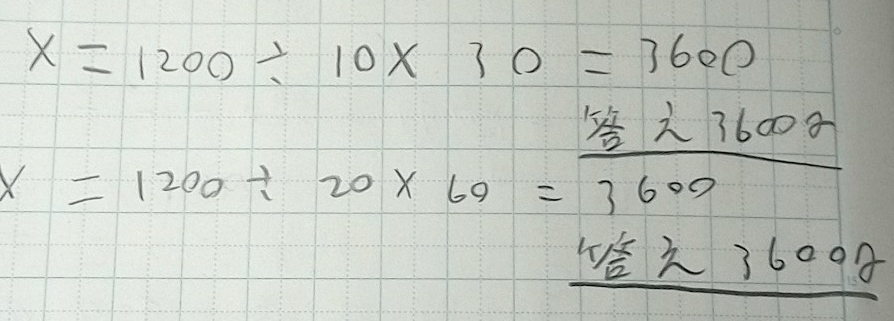 X = 1200 ÷ 10 × 30 = 3600
答え 3600g
X = 1200 ÷ 20 × 60 = 3600
答え 3600g